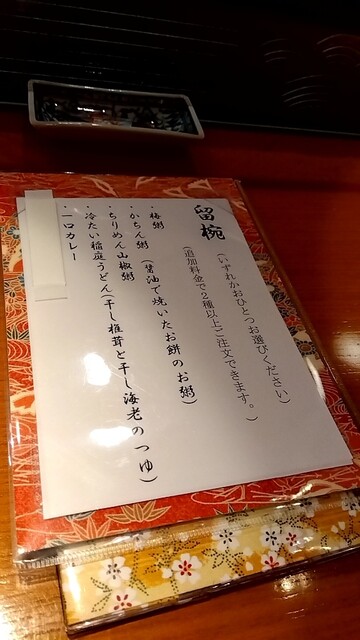 留椀
(いずれかおひとつお選びください)
(追加料金で2種以上ご注文できます。)
・梅粥
・かちん粥 (醤油で焼いたお餅のお粥)
・ちりめん山椒粥
・冷たい稲庭うどん(干し椎茸と干し海老のつゆ)
・一口カレー